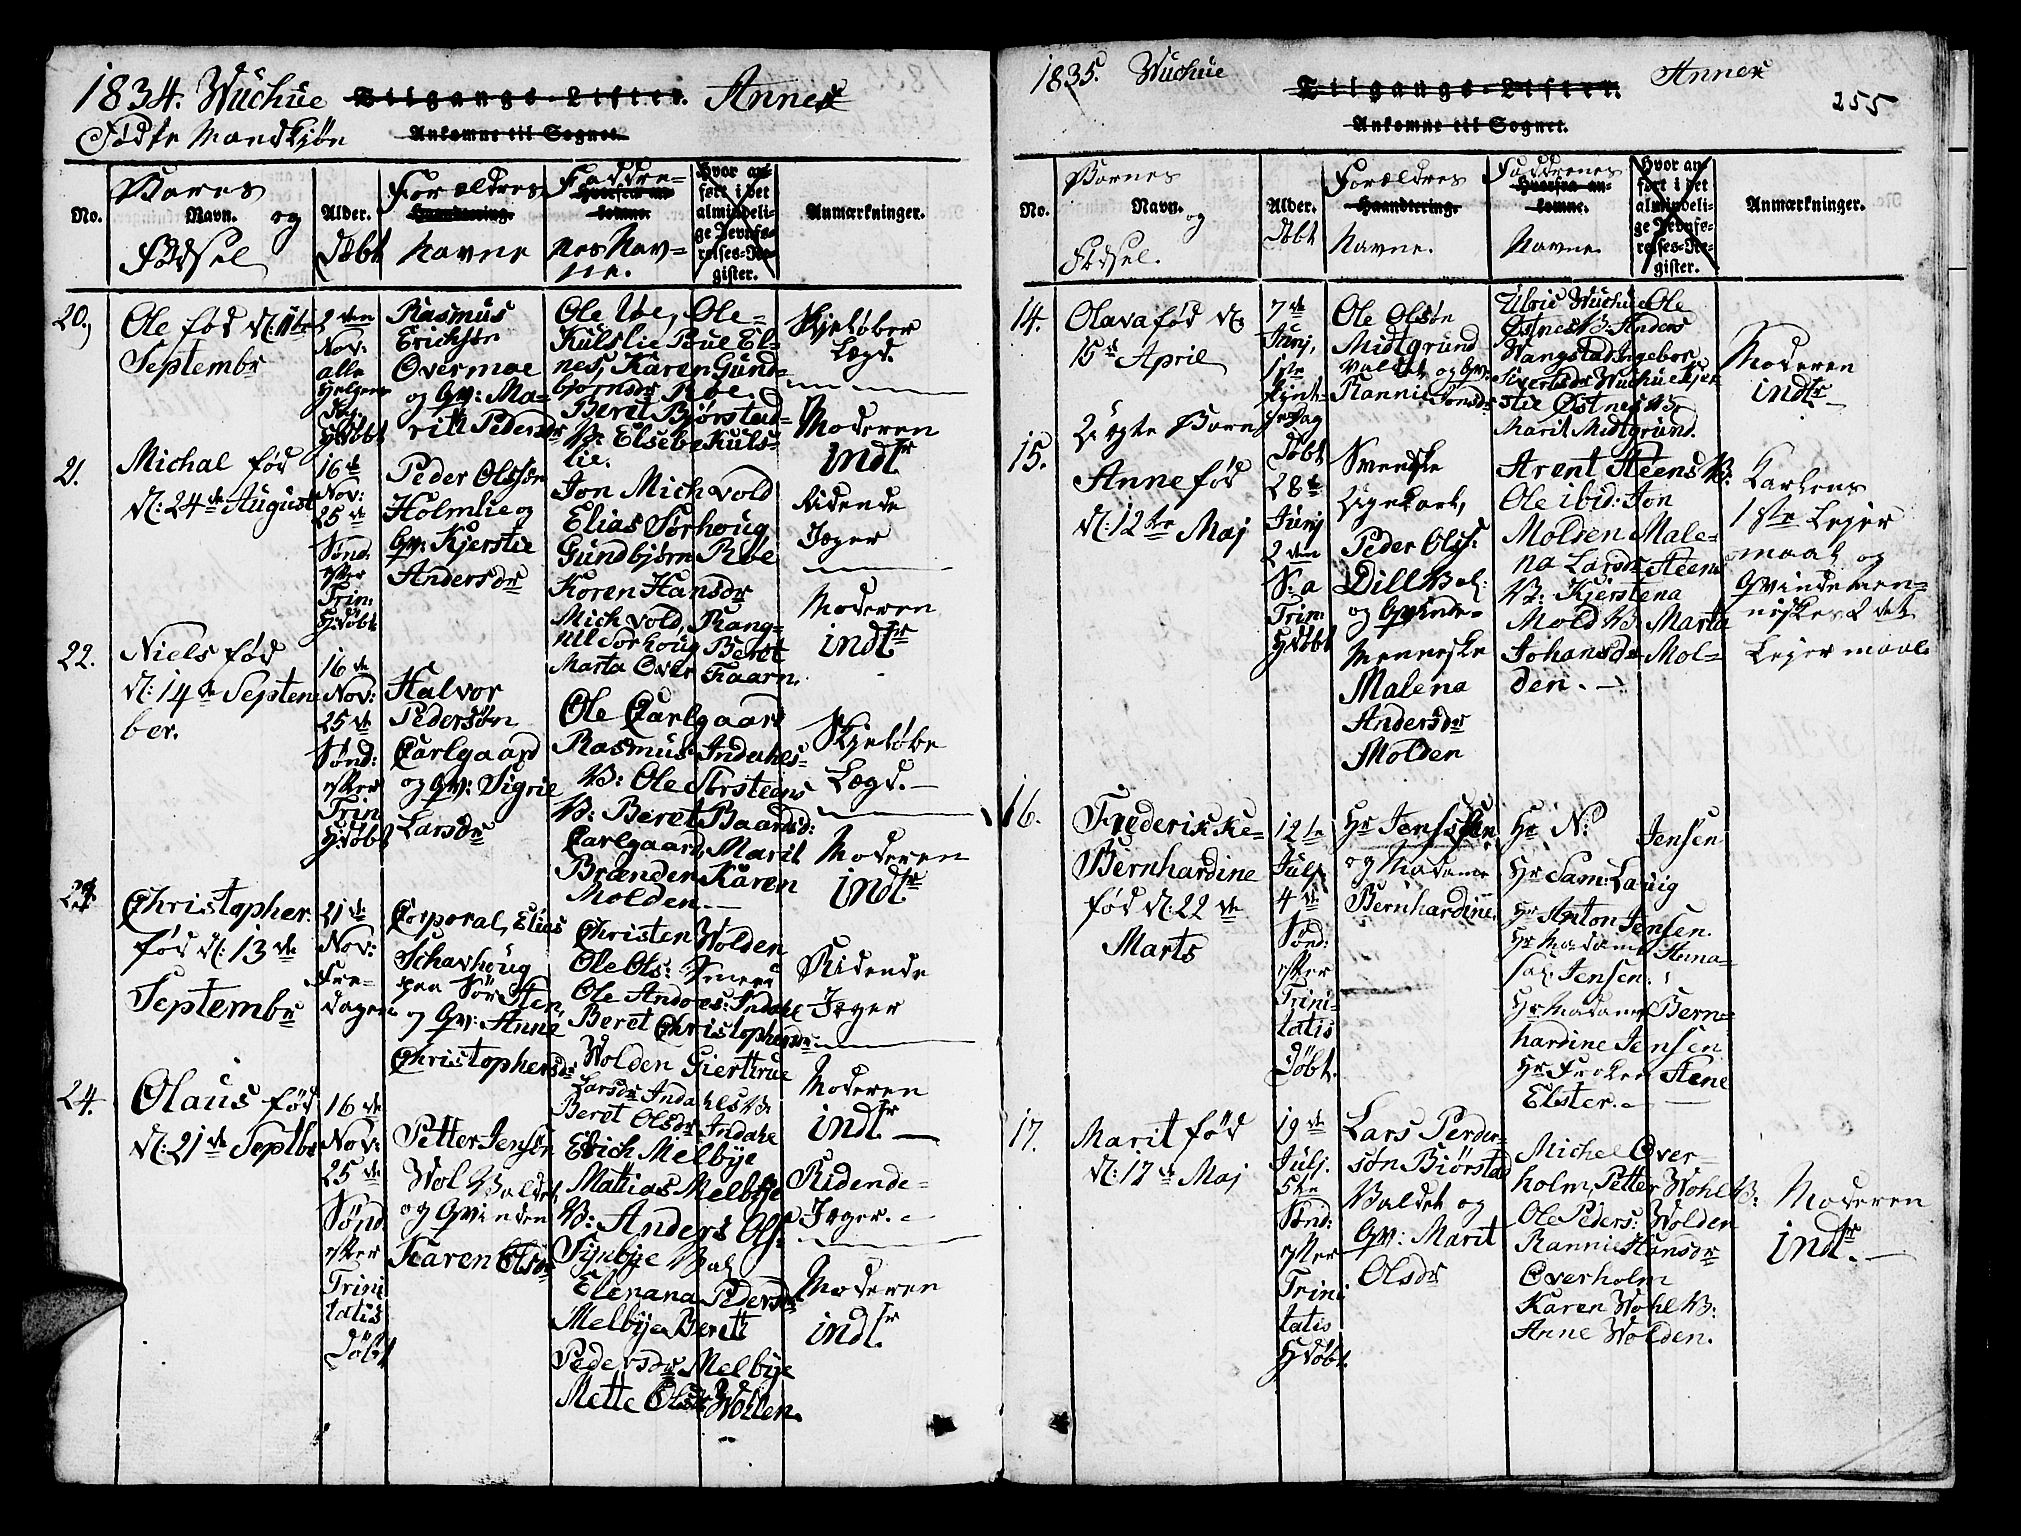 1834. Wuchue Tilgangs-Lister. Annex
Fødte Mandkjøn Ankomne til Sognet.
No. Børnes Navn. og Fødsel
Alder. Døbt
Forældres Haandtering. Navne
Faddre- Hvorfra ankomne. nes Nav- ne.
Hvor anført i det almindelige Jevnførelses-Register.
Anmærkninger.
20.
Ole fød d: 11te
Septembr
2den
Nov:
alle
Helgens
Dag
Hdøbt
Rasmus
Erichsøn
Overmoe
og Gv: Ma-
rit Pedersdr
Ole Løe, Ole
Kulslie Poue El-
nes, Karen Gund-
bjørnsdr Roe.
Beret Bjørstad-
V: Elsebe Kuls-
lie.
Skjeløber
Lægd.
Moderen
indl.
21.
Michal fød
d: 24de August
16de
Nov:
25de
Sønd.
efter
Trin:
Hdøbt
Peder Olssøn
Holmlie og
Gv: Kjerstie
Andersdr
Jon Mich vold
Elias Sørhoug
Gundbjørn Roe
Karen Hansdr
Mich vold, Rang-
nil Sorhoug Beret
Marta Over Faarn.
Ridende
Jæger
Moderen
indl.
22.
Niels fød
d: 14de Septem
ber.
16de
Nov:
25de
Sønd:
efter
Trin
Hdøbt
Halvor
Pedersøn
Carlgaard
og Gv: Sigrie
Larsdr
Ole Carlgaard
Rasmus Indahls-
V: Ole Storsteens
V: Beret Baardsd:
Carlgaard, Marit
Brænden Karen
Molden.
Skjeløbe
Lægd.
Moderen
indl.
23
Christopher.
fød d: 13de
Septembr
21de
Nov:
Fre-
dagen
Corporal, Elias
Schavhoug
paa Sør Sten
og Gv: Anne
Christophersdr
Christen Wolden
Ole Ols:
Ole Andoes: Indahl
Beret Christophersdr
Wolden Gierttrue
Larsdr Indahls V:
Beret Olsdr Indahl
Ridende
Jæger
Moderen
indl.
24.
Olaus fød
d: 21de Septbr
16de
Nov:
25de
Sønd.
efter
Trini
tatis
Døbt
Petter Jensøn
Wol Valdet
og Qvinden
Karen Olsdr
Erich Melbye
Mattias Melbye
V: Anders Ols
Fynbye Val
Elenana Pedersdr
Melbye Berett
Pedersdr Melbye
Mette Olsdr Wollen.
Ridende-
Jæger.
Moderen
indl.
1835. Wuchue Tilgangs-Lister. Annex
255
Ankomne til Sognet.
No. Børnes Navn. og Fødsel.
Alder. Døbt
Forældres Haandtering. Navne.
Faddrenes Hvorfra ankomne. Navne
Hvor anført i det almindelige Jevnførelses-Register.
Anmærkninger.
14.
Olava fød d:
15de April
7de
Junj,
1ste
Pint-
se Dag
Døbt
Ole Olsøn
Midtgrund
Valdet og Gv:
Rannie Jonsdr
Elvie Wuchue Ole
Østnes V: Anders
Wangstad Ingebor
Sivertsdr Wuchue Kjer
stie Østnes V:
Marit Midtgrund.
Moderen
indl.
Uægte Barn
15.
Anne fød
d: 12te Maj
28de
Junj
2den
S: a
Trin:
Hdøbt
Svenske
Ugekarl,
Peder Ols:
Dillhal:
og Qvinde-
Menneske
Malena
Andersdr
Molden
Arent Steens V:
Ole ibid: Jon
Molden Male-
na Larsdr Steen
V: Kjerstena
Mold V: Marta
Johansdr Mol-
den.
Karlens
1ste Lejer
maal og
Qvindemen-
niskes 2det
Lejermaal.
16.
Frederikke-
Bernhardine
fød d: 22de
Marts
12te
Julj
4de
Sønd:
efter
Trini-
tatis
Døbt.
Hr Jenssen
og Madame
Bernhardine.
Hr N: Jensen
Hr Sam: Lauig
Hr Anton Jensen.
Hr Madame Hana-
Jensen:
Hr Madame Bern-
hardine Jensen
Hr Frøken Stene
Elster.
17.
Marit fød
d: 17de Maj
19de
Julj.
5te
Sønd:
efter
Trini
tatis
Hdøbt.
Lars Perder-
søn Biørstad
Valdet og
Gv: Marit
Olsdr
Michel Over-
holm, Petter Wohl V:
Ole Peders: Wolden
Rannie Hansdr
Overholm
Karen Wohl V:
Anne Wolden.
Moderen
indl.